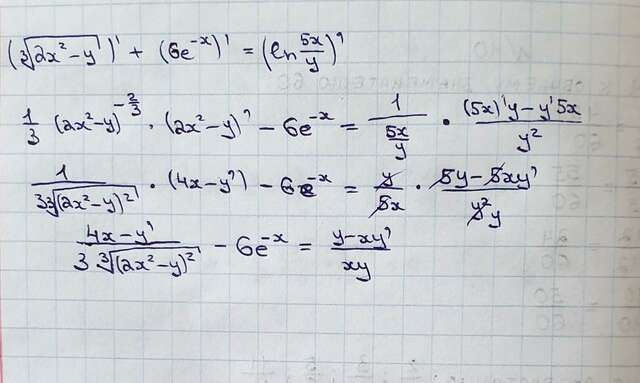 (∛(2x²-y))' + (6e⁻ˣ)' = (ln 5x/y)'
1/3 (2x²-y)^(-2/3) · (2x²-y)' - 6e⁻ˣ = 1/(5x/y) · ((5x)'y - y'5x)/y²
1/(3∛((2x²-y)²)) · (4x-y') - 6e⁻ˣ = y/5x · (5y-5xy')/y² y
(4x-y')/(3∛((2x²-y)²)) - 6e⁻ˣ = (y-xy')/xy